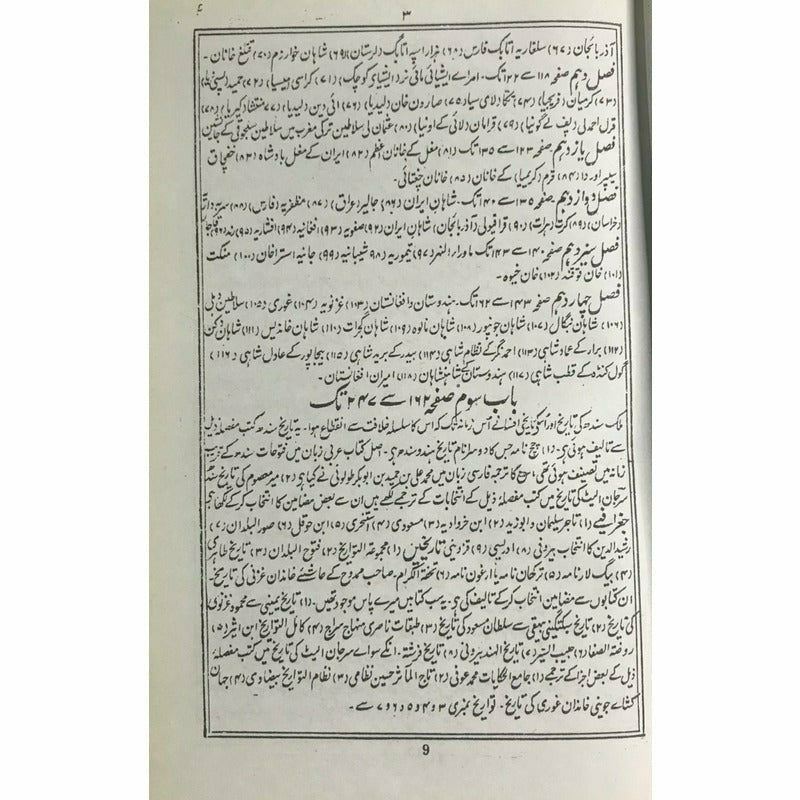 ۳
آذربائجان (۶۷) سلغاریہ اتابک فارس (۶۸) ہزار اسپہ اتابگ لرستان (۶۹) شاہان خوارزم (۷۰) قتلغ خانان۔
فصل دہم صفحہ ۱۱۸ سے ۱۲۲ تک۔ امراے ایشیائی مائی نرد ایشیای کوچک (۷۱) کراسی میسیا (۷۲) حمید
(۷۳) کرمیان فریجیا (۷۴) لیسیا (۷۵) صارون خان لیدیا (۷۶) آئی دین لیدیا (۷۷) منتشا کیریا (۷۸)
قزل احمدلی پیف لے گونیا (۷۹) قرامان (۸۰) عثمان لی سلاطین ترکی مغرب میں سلاطین سلجوقی کے جانشین
فصل یازدہم صفحہ ۱۲۳ سے ۱۳۵ تک (۸۱) مغل کے خانان اعظم (۸۲) ایران کے مغل بادشاہ (۸۳) خفچاق
سیر اوردا (۸۴) قرم (کریمیا) کے خانان (۸۵) خانان چغتائی۔
فصل دوازدہم صفحہ ۱۳۵ سے ۱۴۰ تک۔ شاہان ایران (۸۶) جالیر (عراق) (۸۷) مظفریہ (فارس) (۸۸) سربدارانیہ
(خراسان) (۸۹) کرت (ہرات) (۹۰) قراقیونلی آذربائجان) شاہان ایران (۹۲) صفویہ (۹۳) افغانیہ (۹۴) افشاریہ (۹۵) زند (۹۶) قاچار
فصل سیزدہم صفحہ ۱۴۰ سے ۱۴۳ تک ماوراء النہر (۹۷) تیموریہ (۹۸) شیبانیہ (۹۹) جانیہ استراخان (۱۰۰) منگت
(۱۰۱) خان قوقند (۱۰۲) خان خیوہ۔
فصل چہاردہم صفحہ ۱۴۳ سے ۱۶۲ تک۔ ہندوستان و افغانستان (۱۰۳) غزنویہ (۱۰۴) غوری (۱۰۵) سلاطین دہلی
(۱۰۶) شاہان بنگال (۱۰۷) شاہان جونپور (۱۰۸) شاہان مالوہ (۱۰۹) شاہان گجرات (۱۱۰) شاہان خاندیس (۱۱۱) شاہان دکن
(۱۱۲) برار کے عماد شاہی (۱۱۳) احمد نگر کے نظام شاہی (۱۱۴) بیدر کے برید شاہی (۱۱۵) بیجاپور کے عادل شاہی (۱۱۶)
گول کنڈہ کے قطب شاہی (۱۱۷) ہندوستان کے شاہنشاہان (۱۱۸) امیران افغانستان۔
باب سوم صفحہ ۱۶۲ سے ۲۴۷ تک
ملک سندھ کی تاریخ اور اُسکے تاریخی افسانے اُس زمانہ تک کہ اس کا سلسلہ خلافت سے انقطاع ہوا۔ یہ تاریخ سندھ کتب مفصلہ ذیل
سے تالیف ہوئی ہی۔ (۱) چچ نامہ جس کا دوسرا نام تاریخ ہند و سندھ ہی۔ اصل کتاب عربی زبان میں فتوحات سندھ کے قریب
زمانہ میں تصنیف ہوئی تھی اسکا ترجمہ فارسی زبان میں محمد علی بن حمید بن ابوبکر کوفی نے کیا ہی (۲) میر معصوم کی تاریخ سندھ
سرجان الیٹ کی تاریخ میں کتب مفصلہ ذیل کے انتخابات کے ترجمے لکھے ہیں ان سے بعض مضامین کا انتخاب کر کے لکھا ہی
جغرافیے (۱) تاجر سلیمان و ابوزید (۲) ابن خردادبہ (۳) مسعودی (۴) استخری (۵) ابن حوقل (۶) صور البلدان (۷)
رشید الدین کا انتخاب بیرونی (۸) ادریسی (۹) قزوینی تاریخیں (۱) مجموعۃ التواریخ (۲) فتوح البلدان (۳) تاریخ طاہری
(۴) بیگ لار نامہ (۵) ترخان نامہ یا ارغون نامہ (۶) تحفۃ الکرام۔ صاحب ممدوح کے حاشیے خاندان غزنی کی تاریخ۔
ان کتابوں سے مضامین انتخاب کر کے تالیف کی ہی۔ یہ سب کتابیں میرے پاس موجود تھیں۔ (۱) تاریخ یمینی سے محمود غزنوی
کی تاریخ (۲) تاریخ سبکتگینی بیہقی سے سلطان مسعود کی تاریخ (۳) طبقات ناصری منہاج سراج (۴) کامل التواریخ ابن اثیر (۵)
روضۃ الصفا (۶) حبیب السیر (۷) تاریخ الہند بیرونی (۸) تاریخ فرشتہ۔ انکے سواے سرجان الیٹ کی تاریخ میں کتب مفصلہ
ذیل کے بعض اجزا کے ترجمے (۱) جامع الحکایات محمد عوفی (۲) تاج المآثر حسین نظامی (۳) نظام التواریخ بیضاوی (۴) جہان
کشاے جوینی خاندان غوری کی تاریخ۔ تواریخ نمبری ۳ و ۴ و ۵ و ۶ و ۷ سے۔
9